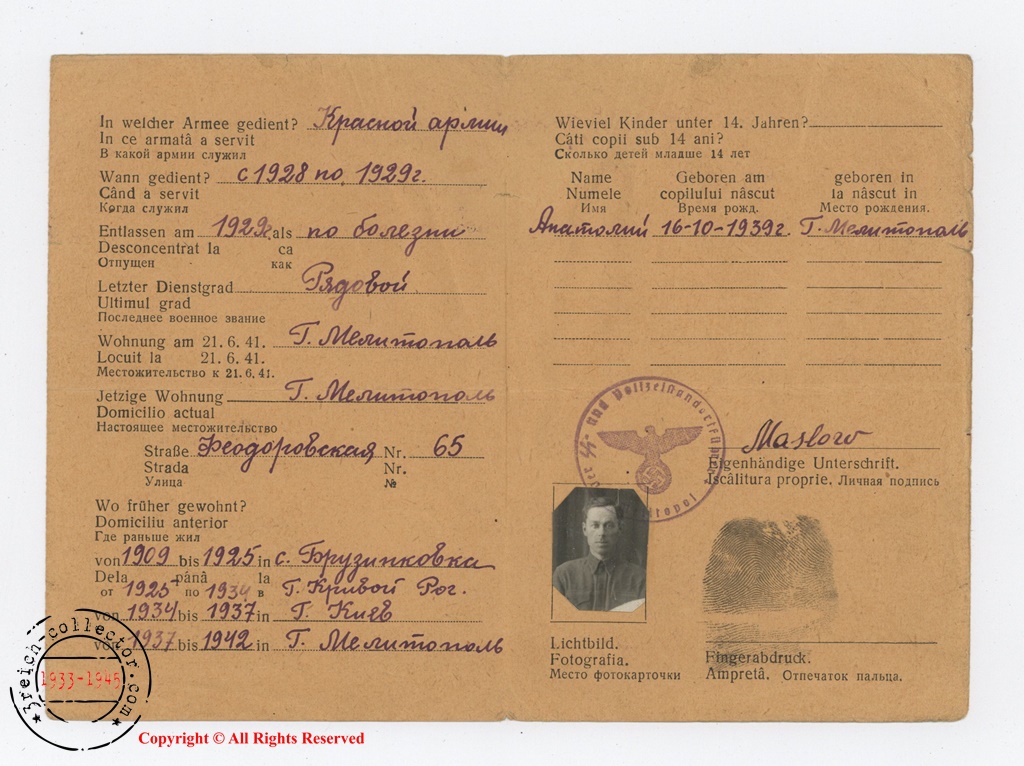 In welcher Armee gedient? Красной армии
In ce armatâ a servit
В какой армии служил
Wann gedient? с 1928 по 1929г.
Când a servit
Когда служил
Entlassen am 1929 als по болезни
Desconcentrat la са
Отпущен как
Letzter Dienstgrad Рядовой
Ultimul grad
Последнее военное звание
Wohnung am 21. 6. 41. Г. Мелитополь
Locuit la 21. 6. 41.
Местожительство к 21.6.41.
Jetzige Wohnung Г. Мелитополь
Domicilio actual
Настоящее местожительство
Straße Феодоровская Nr. 65
Strada Nr.
Улица №
Wo früher gewohnt?
Domiciliu anterior
Где раньше жил
von 1909 bis 1925 in с. Брузинковка
Dela până la
от 1925 по 1934 в Г. Кривой Рог.
von 1934 bis 1937 in Г. Киев
von 1937 bis 1942 in Г. Мелитополь
Wieviel Kinder unter 14. Jahren?
Câti copii sub 14 ani?
Сколько детей младше 14 лет
Name Geboren am geboren in
Numele copilului născut la născut in
Имя Время рожд. Место рождения.
Анатолий 16-10-1939г. Г. Мелитополь
der SS- und Polizeistandortführer
Maslow
Eigenhändige Unterschrift.
Iscâlitura proprie. Личная подпись
Lichtbild.
Fotografia.
Место фотокарточки
Fingerabdruck.
Ampretâ. Отпечаток пальца.
3reich-collector.com
1933-1945
Copyright © All Rights Reserved